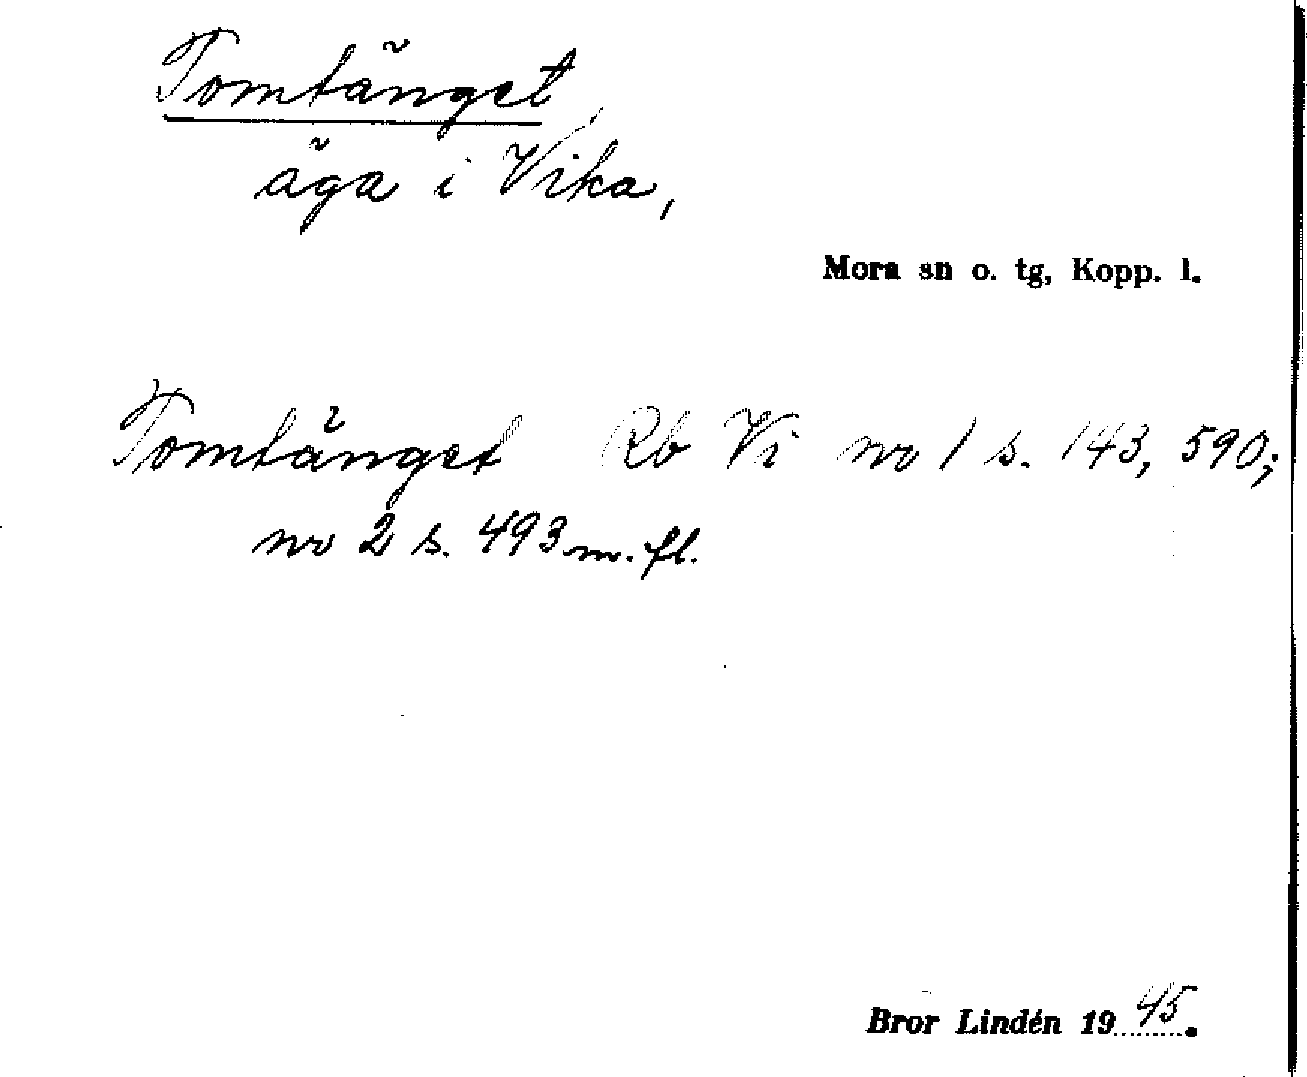 Tomtänget
äga i Vika,
Mora sn o. tg, Kopp. l.
Tomtänget Rb Vi no 1 s. 143, 590;
no 2 s. 493 m. fl.
Bror Lindén 1945.